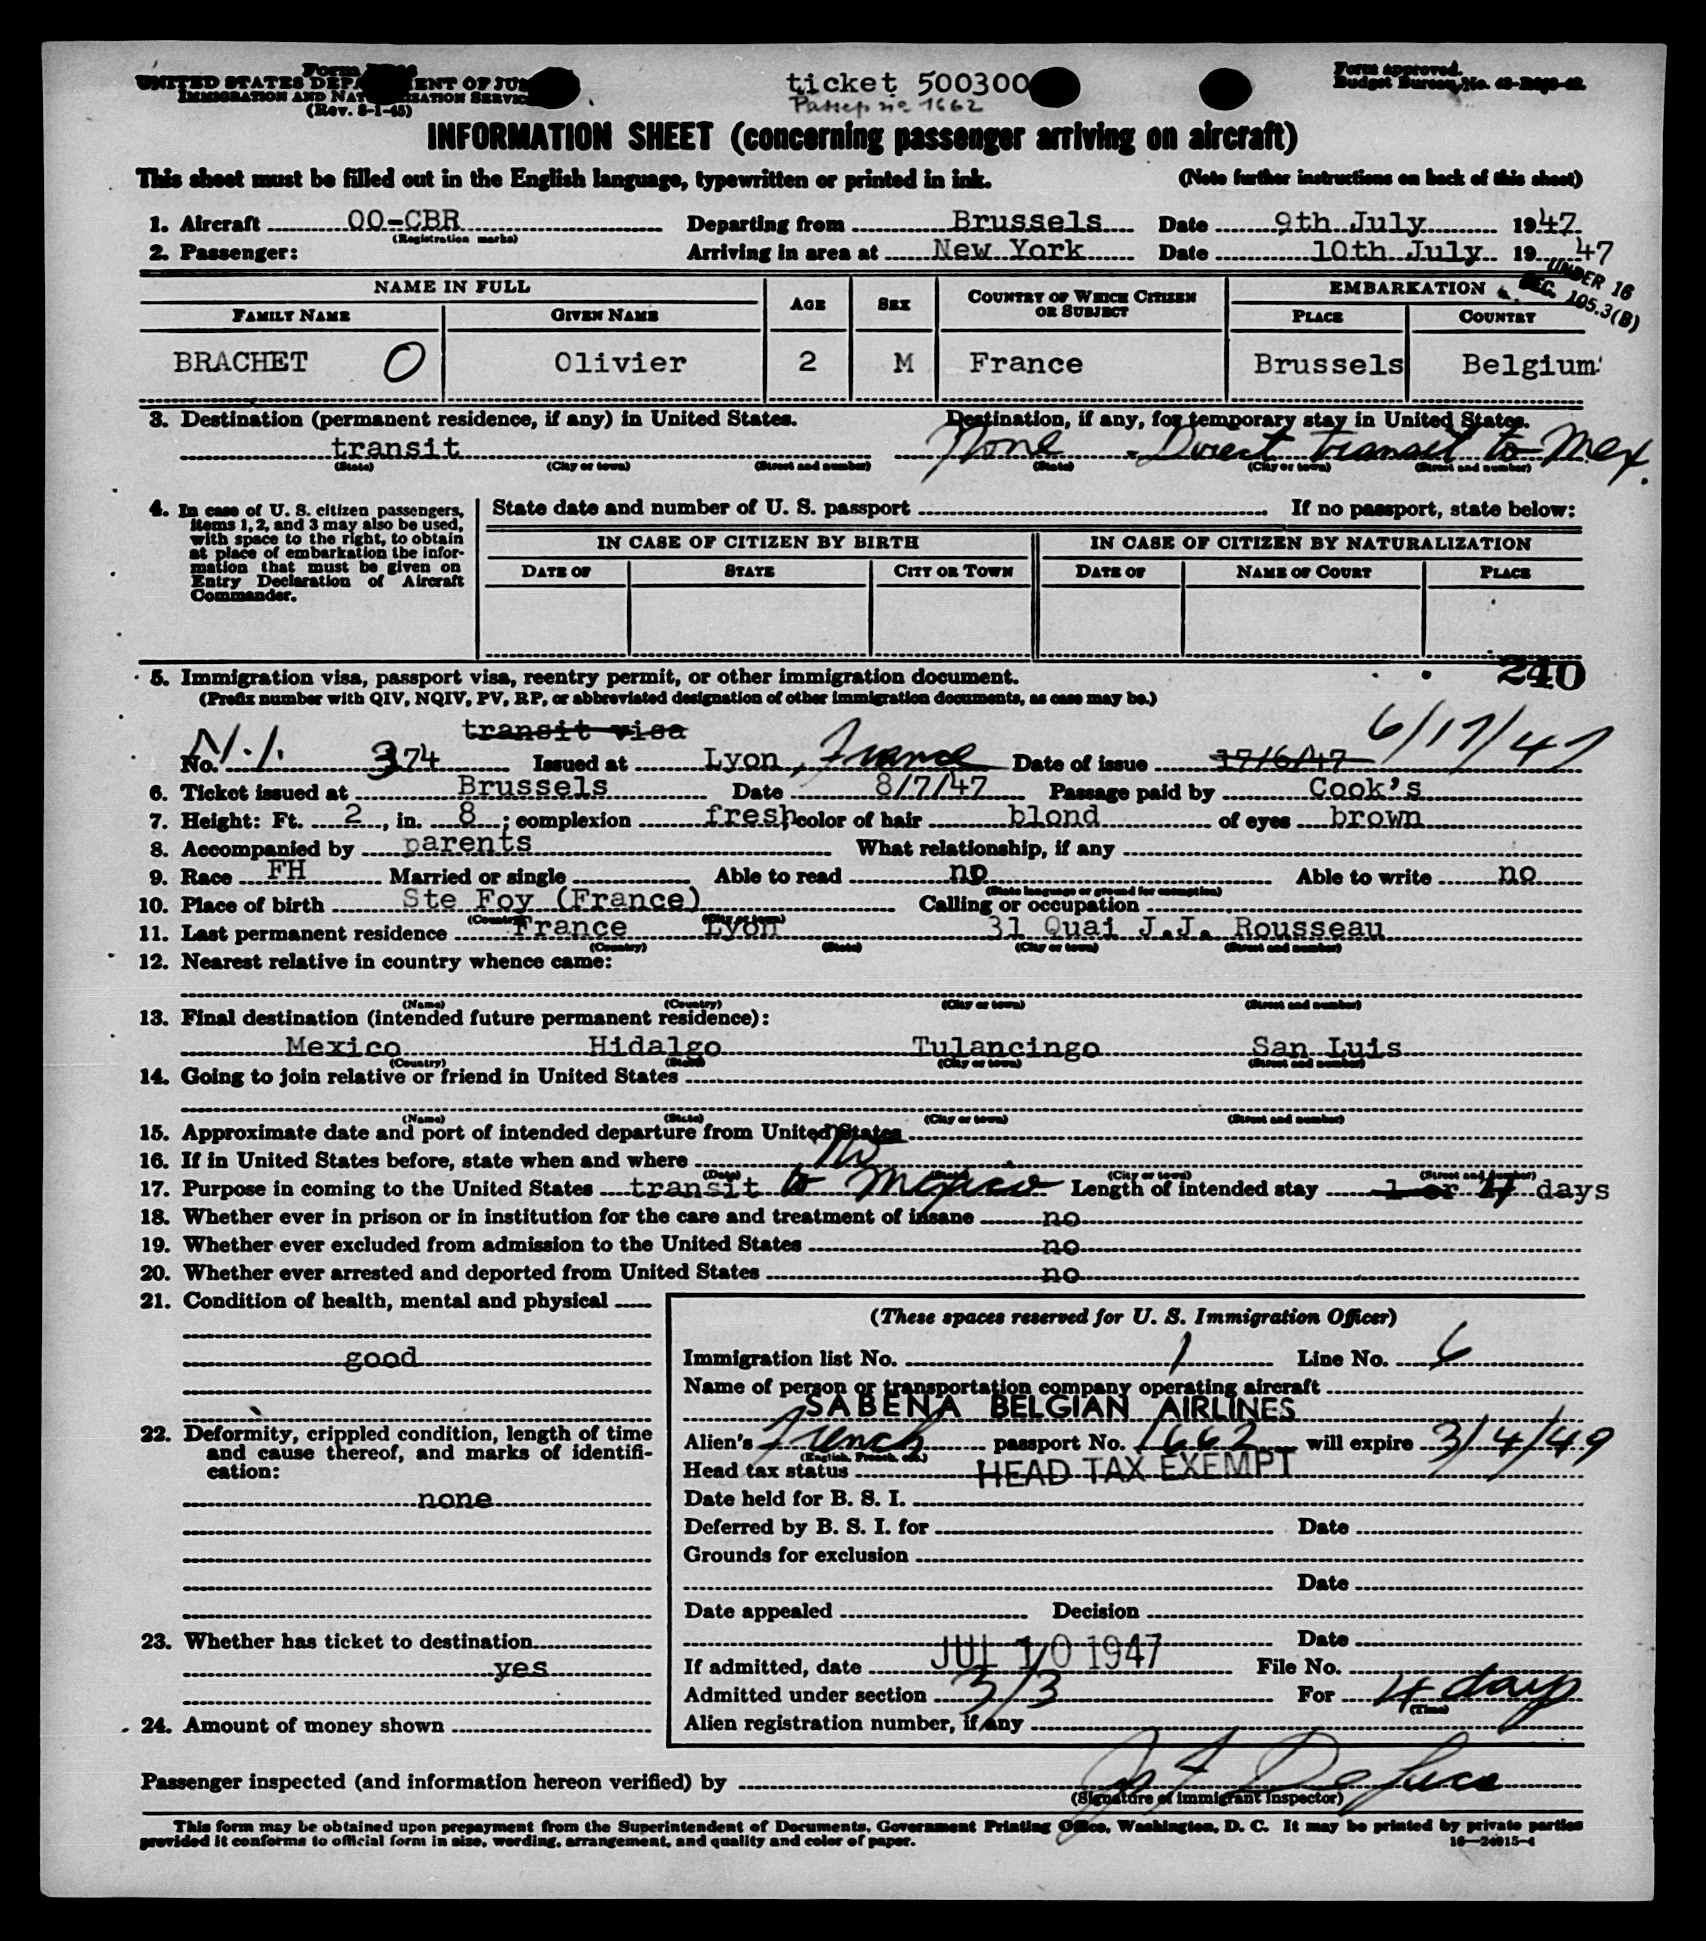 UNITED STATES DEPARTMENT OF JUSTICE
IMMIGRATION AND NATURALIZATION SERVICE
(Rev. 8-1-45)
ticket 500300
Passep no 1662
Form approved.
Budget Bureau No.
INFORMATION SHEET (concerning passenger arriving on aircraft)
This sheet must be filled out in the English language, typewritten or printed in ink. (Note further instructions on back of this sheet)
1. Aircraft OO-CBR Departing from Brussels Date 9th July 1947
(Registration marks)
2. Passenger: Arriving in area at New York Date 10th July 1947
UNDER 16
SEC. 105.3(B)
NAME IN FULL AGE SEX COUNTRY OF WHICH CITIZEN OR SUBJECT EMBARKATION
FAMILY NAME GIVEN NAME PLACE COUNTRY
BRACHET O Olivier 2 M France Brussels Belgium
3. Destination (permanent residence, if any) in United States. Destination, if any, for temporary stay in United States.
transit None - Direct transit to Mex.
(State) (City or town) (Street and number) (State) (City or town) (Street and number)
4. In case of U. S. citizen passengers, items 1, 2, and 3 may also be used, with space to the right, to obtain at place of embarkation the information that must be given on Entry Declaration of Aircraft Commander.
State date and number of U. S. passport If no passport, state below:
IN CASE OF CITIZEN BY BIRTH IN CASE OF CITIZEN BY NATURALIZATION
DATE OF STATE CITY OR TOWN DATE OF NAME OF COURT PLACE
240
5. Immigration visa, passport visa, reentry permit, or other immigration document.
(Prefix number with QIV, NQIV, PV, RP, or abbreviated designation of other immigration documents, as case may be.)
transit visa 6/17/47
No. N.I. 374 Issued at Lyon, France Date of issue 17/6/47
6. Ticket issued at Brussels Date 8/7/47 Passage paid by Cook's
7. Height: Ft. 2, in. 8; complexion fresh; color of hair blond of eyes brown
8. Accompanied by parents What relationship, if any
9. Race FH Married or single Able to read no Able to write no
(State language or ground for exemption)
10. Place of birth Ste Foy (France) Calling or occupation
(Country) (City or town)
11. Last permanent residence France Lyon 31 Quai J.J. Rousseau
(Country) (State) (City or town) (Street and number)
12. Nearest relative in country whence came:
(Name) (Country) (City or town) (Street and number)
13. Final destination (intended future permanent residence):
Mexico Hidalgo Tulancingo San Luis
(Country) (State) (City or town) (Street and number)
14. Going to join relative or friend in United States
(Name) (State) (City or town) (Street and number)
15. Approximate date and port of intended departure from United States
16. If in United States before, state when and where No
(Date) (State) (City or town) (Street and number)
17. Purpose in coming to the United States transit to Mexico Length of intended stay 1 or 4 days
18. Whether ever in prison or in institution for the care and treatment of insane no
19. Whether ever excluded from admission to the United States no
20. Whether ever arrested and deported from United States no
21. Condition of health, mental and physical
good
22. Deformity, crippled condition, length of time and cause thereof, and marks of identification:
none
23. Whether has ticket to destination
yes
24. Amount of money shown
(These spaces reserved for U. S. Immigration Officer)
Immigration list No. 1 Line No. 6
Name of person or transportation company operating aircraft
SABENA BELGIAN AIRLINES
Alien's French passport No. 1662 will expire 3/4/49
(English, French, etc.)
Head tax status HEAD TAX EXEMPT
Date held for B. S. I.
Deferred by B. S. I. for Date
Grounds for exclusion
Date
Date appealed Decision
Date
If admitted, date JUL 10 1947 File No.
Admitted under section 3/3 For 4 days
(Time)
Alien registration number, if any
Passenger inspected (and information hereon verified) by
(Signature of immigrant inspector)
This form may be obtained upon prepayment from the Superintendent of Documents, Government Printing Office, Washington, D. C. It may be printed by private parties
provided it conforms to official form in size, wording, arrangement, and quality and color of paper. 16—24015-4